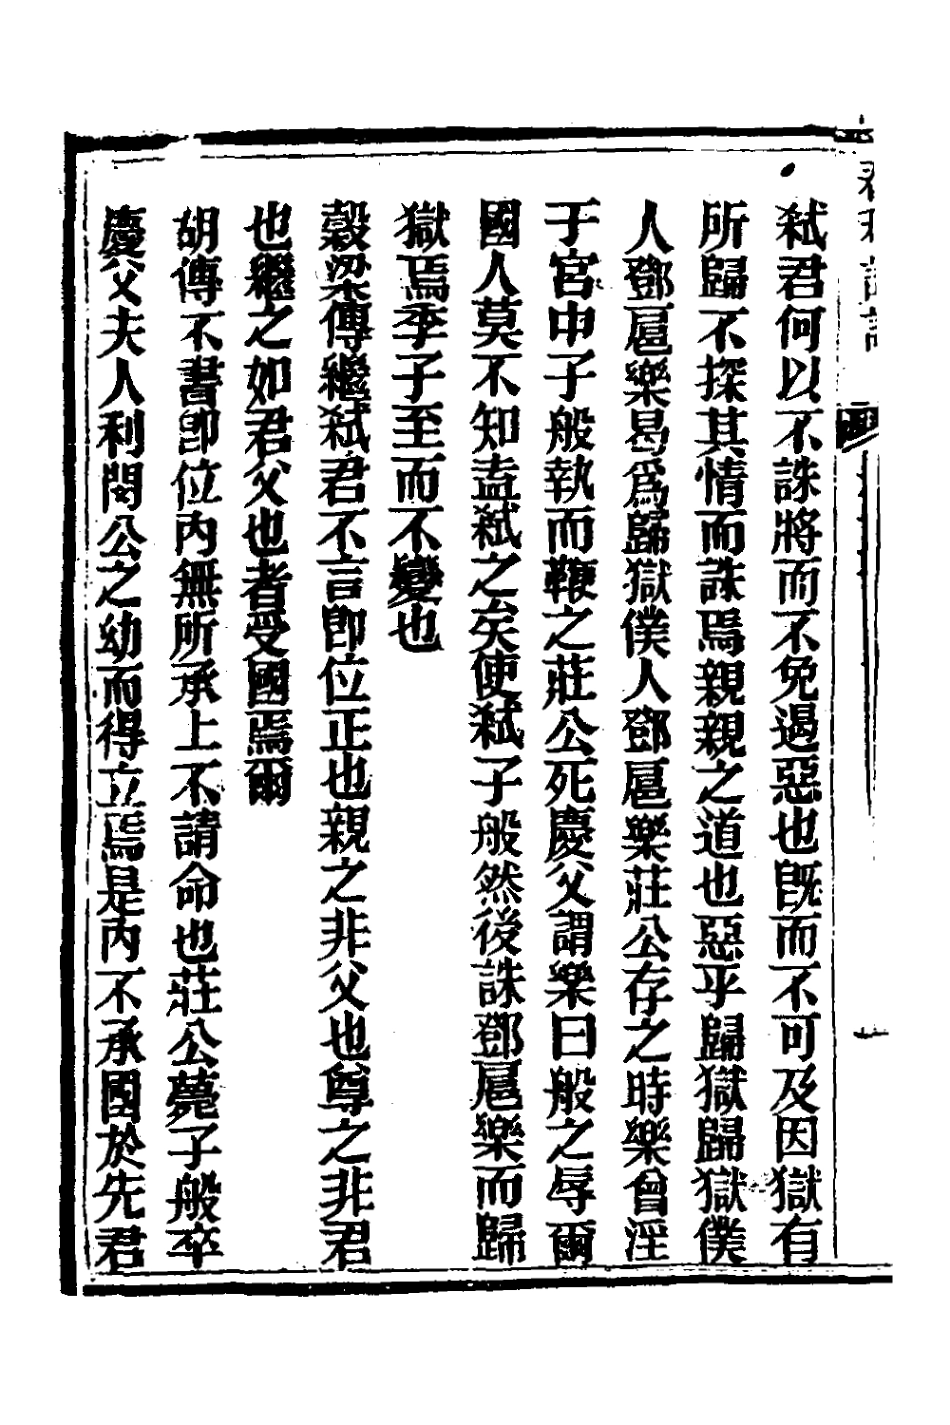 弑君何以不誅將而不免遏惡也旣而不可及因獄有
所歸不探其情而誅焉親親之道也惡乎歸獄歸獄僕
人鄧扈樂曷爲歸獄僕人鄧扈樂莊公存之時樂曾淫
于宮中子般執而鞭之莊公死慶父謂樂曰般之辱爾
國人莫不知盍弑之矣使弑子般然後誅鄧扈樂而歸
獄焉季子至而不變也
穀梁傳繼弑君不言卽位正也親之非父也尊之非君
也繼之如君父也者受國焉爾
胡傳不書卽位內無所承上不請命也莊公薨子般卒
慶父夫人利閔公之幼而得立焉是內不承國於先君